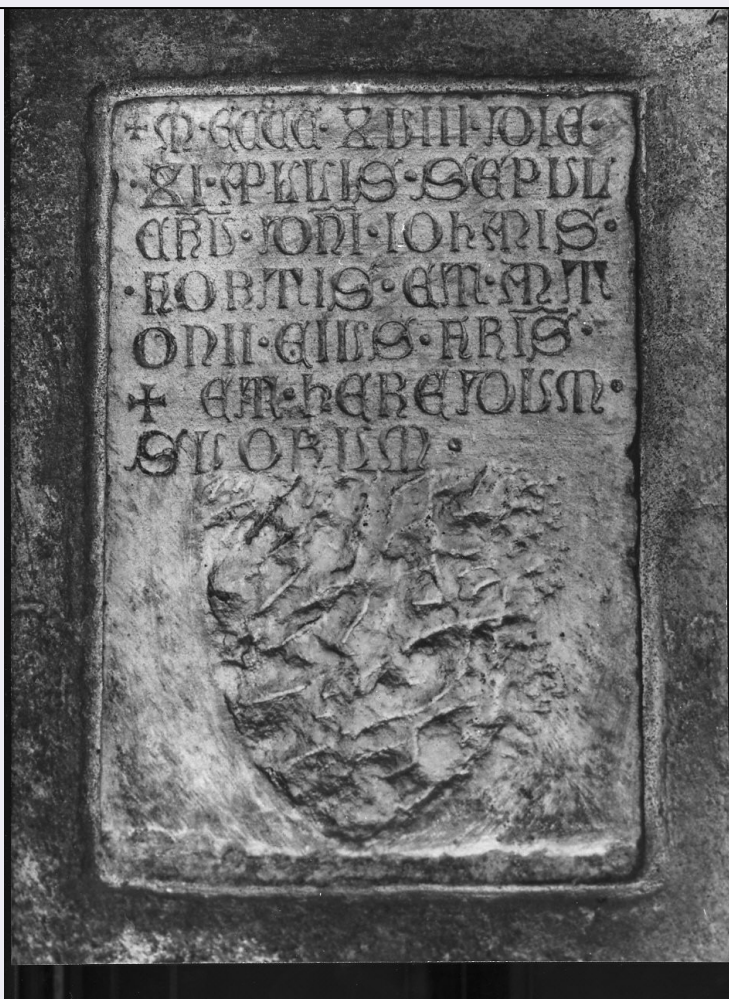 + M · CCCC · XVIII · DIE ·
· XI · APLLIS · SEPUL
CRU · DNI · IOHANIS ·
· FORTIS · ET · ANT
ONII · EIUS · FRIS ·
+ ET · HEREDUM ·
SUORUM ·